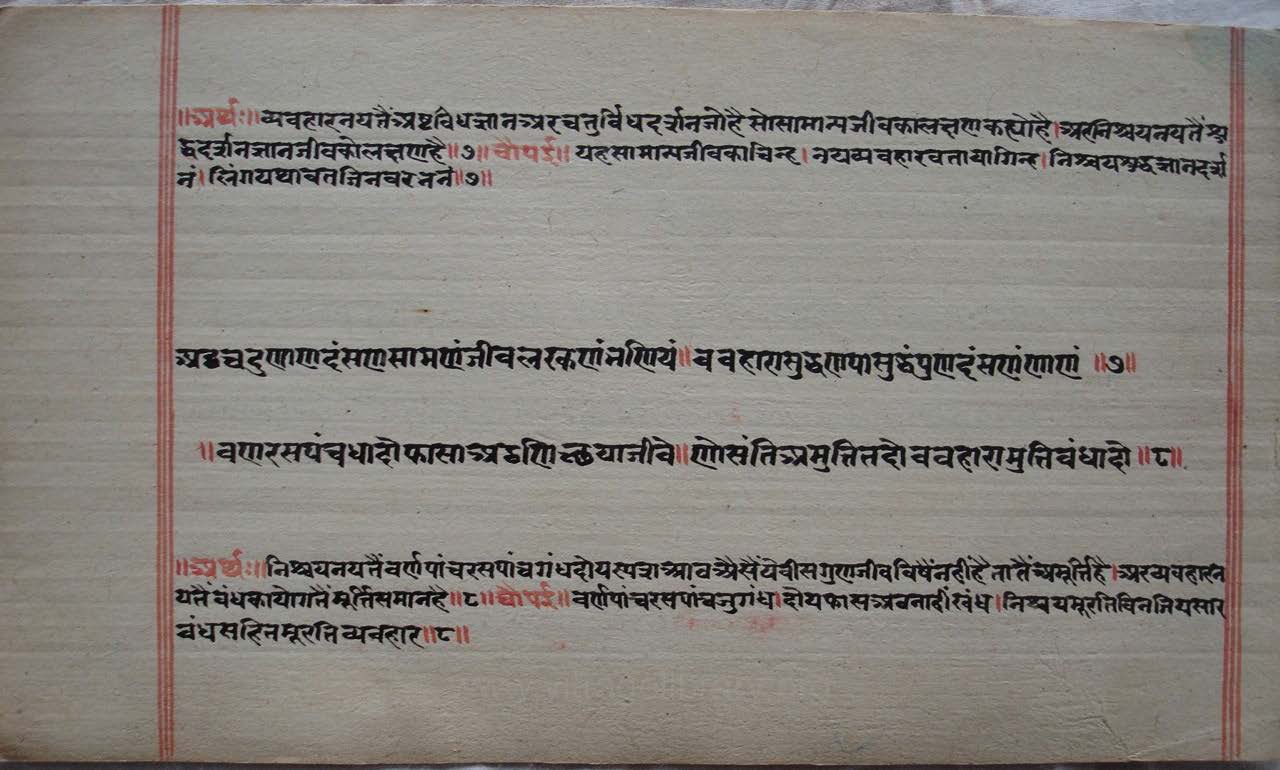 ॥अर्थः॥व्यवहारनयतैंअष्टविधज्ञानअरचतुर्विधदर्शनजोहैसोसामान्यजीवकालक्षणकह्योहै।अरनिश्चयनयतैंशु
द्धदर्शनज्ञानजीवकोलक्षणहै॥७॥चौपई॥यहसामान्यजीवकाचिन्ह।नयव्यवहारवतायागिन्ह।निश्चयशुद्धज्ञानदर्श
नं।लिंगयथावतजिनवरननं॥७॥
अडचदुणाणदंसणसामणंजीवलरकणंभणियं॥ववहारासुद्धणयासुद्धंपुणदंसणंणाणं॥७॥
॥वणरसपंचधादोफासाअठणिच्छयाजीवे॥णोसंतिअमुत्तितदोववहारामुत्तिबंधादो॥८॥
॥अर्थः॥निश्चयनयतैंवर्णपांचरसपांचगंधदोयस्पर्शआठअैसैंयेवीसगुणजीवविषैंनहींहैतातैंअमूर्त्तिहै।अरव्यवहारन
यतैंबंधकायोगतैंमूर्त्तिसमानहै॥८॥चौपई॥वर्णपांचरसपांचजुगंध।दोयफासअठनाहींखंध।निश्चयमूरतिविनजियसार
बंधसहितमूरतिव्यवहार॥८॥